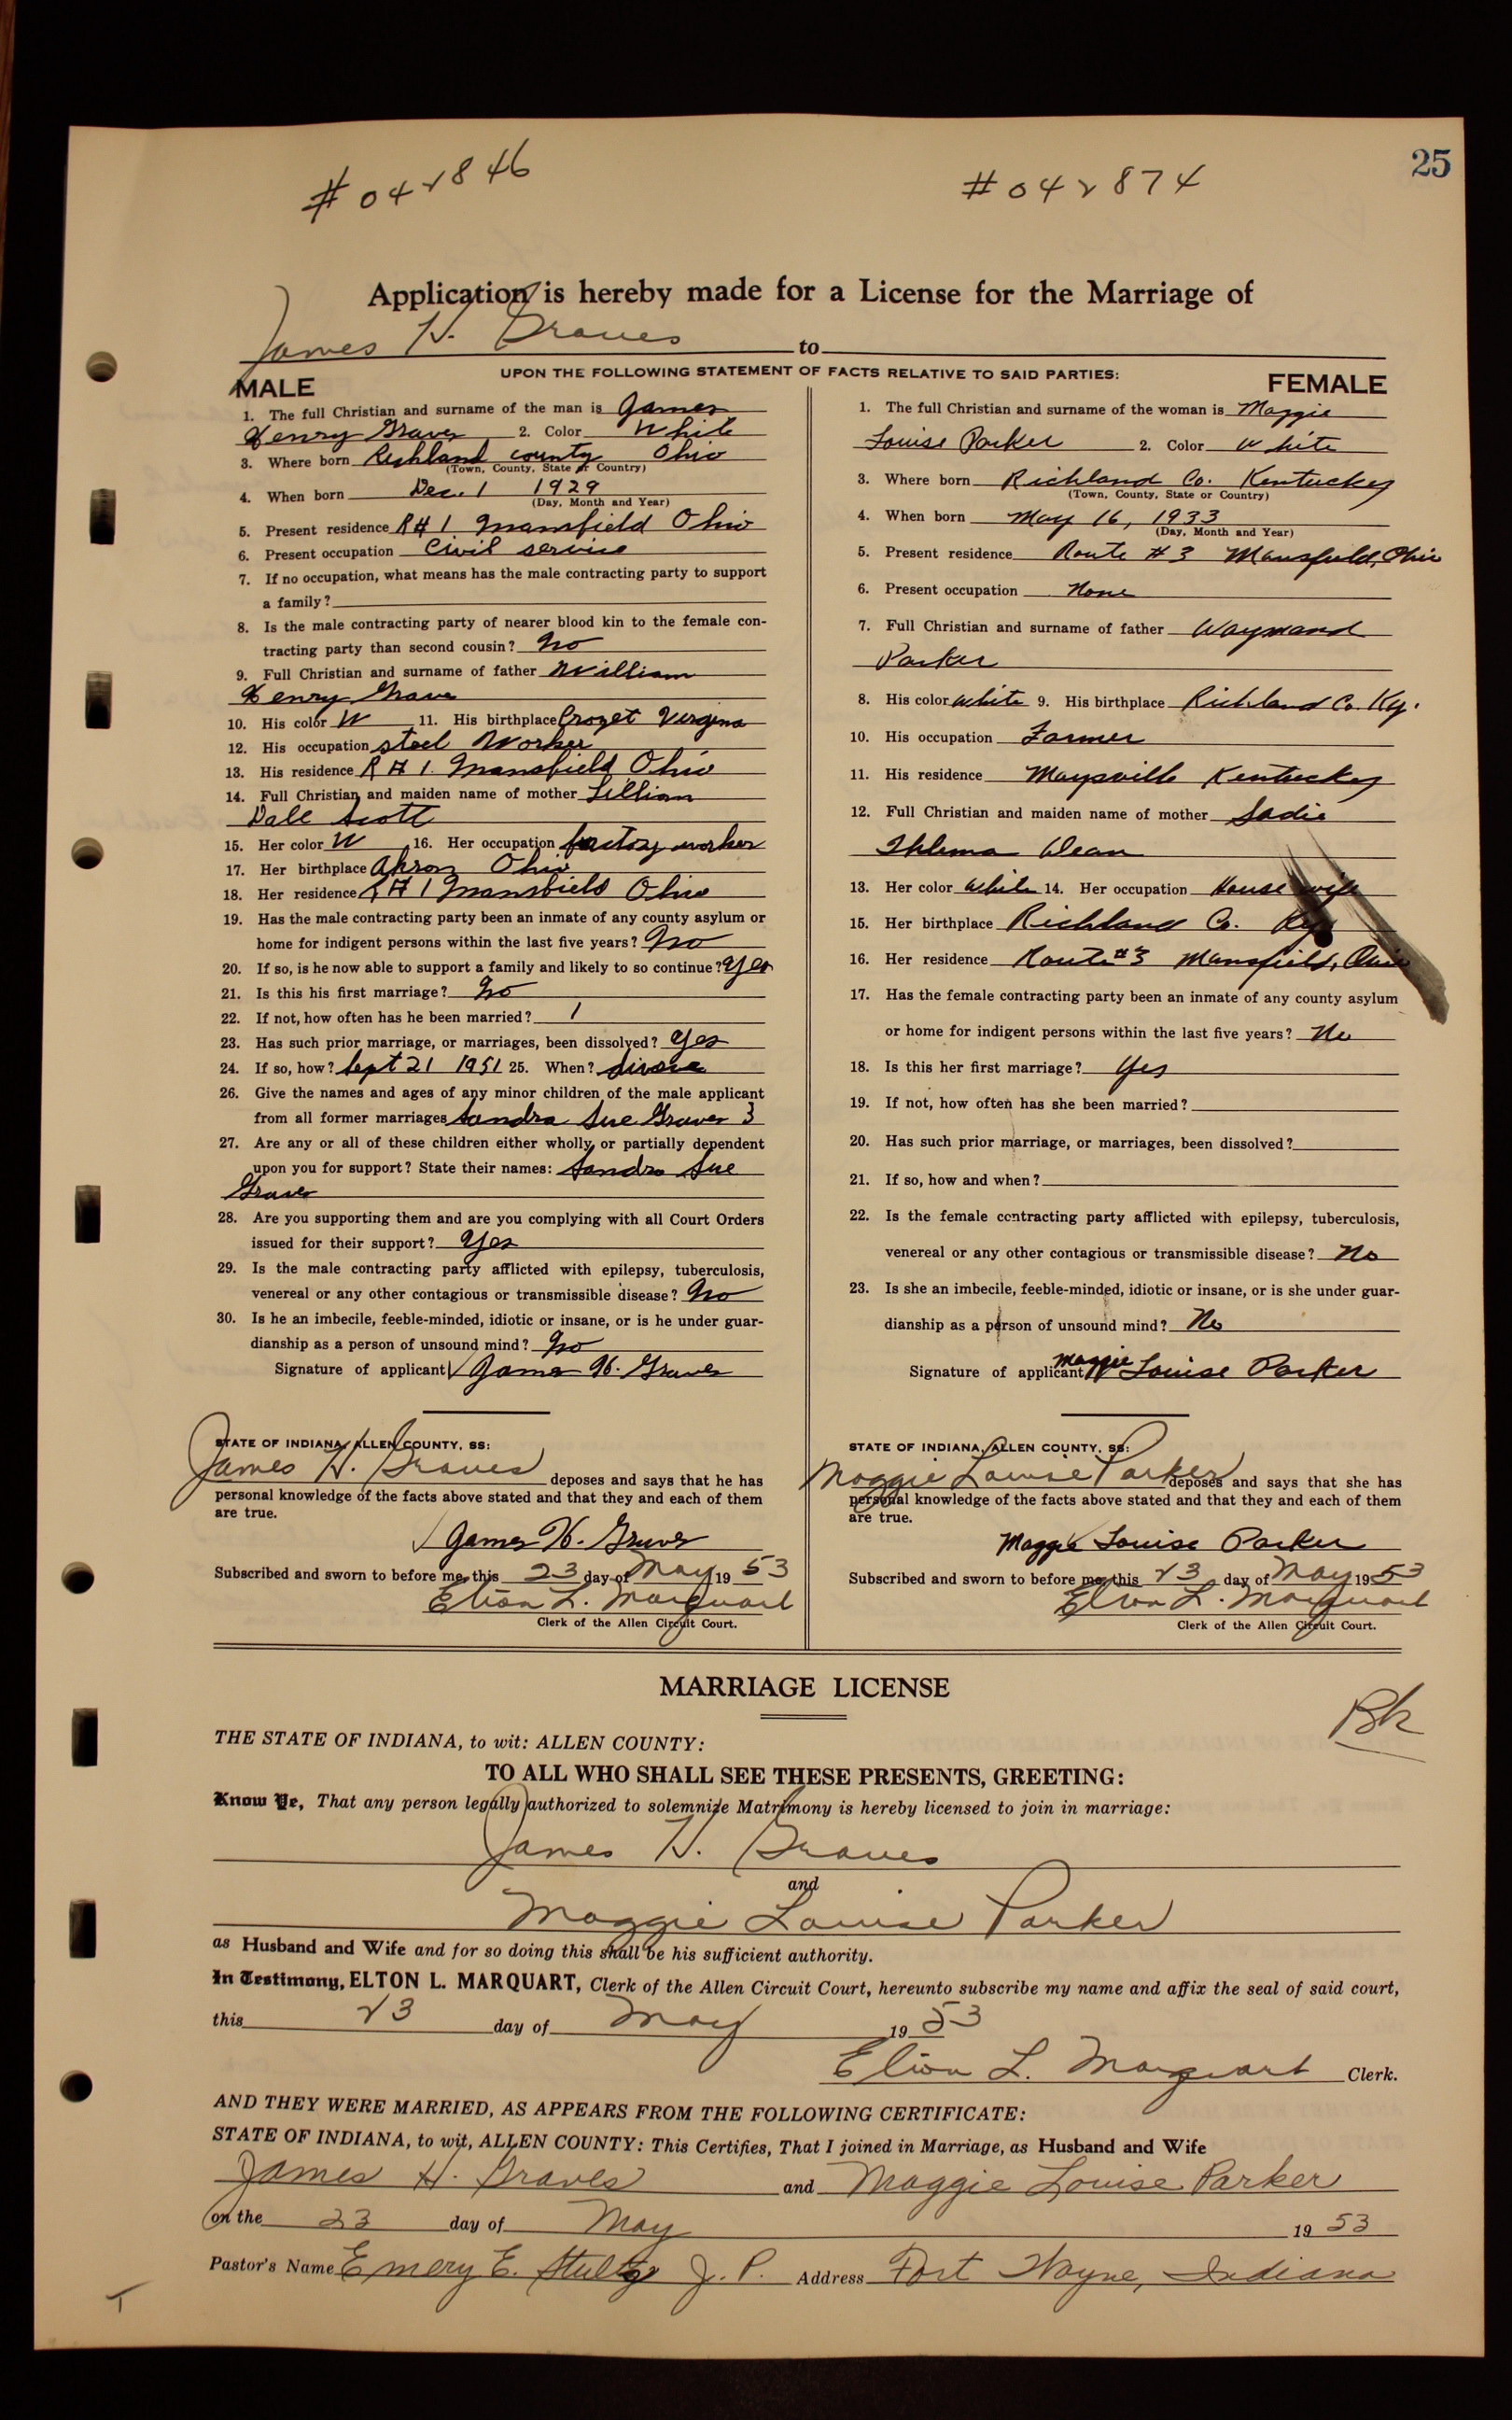 25
#042846
#042874
Application is hereby made for a License for the Marriage of
James H. Graves to
UPON THE FOLLOWING STATEMENT OF FACTS RELATIVE TO SAID PARTIES:
MALE
1. The full Christian and surname of the man is James
Henry Graves 2. Color White
3. Where born Richland county Ohio
(Town, County, State or Country)
4. When born Dec. 1 1929
(Day, Month and Year)
5. Present residence R#1 Mansfield Ohio
6. Present occupation Civil service
7. If no occupation, what means has the male contracting party to support
a family?
8. Is the male contracting party of nearer blood kin to the female con-
tracting party than second cousin? No
9. Full Christian and surname of father William
Henry Graves
10. His color W 11. His birthplace Crozet Virginia
12. His occupation steel Worker
13. His residence R#1. Mansfield Ohio
14. Full Christian and maiden name of mother Lillian
Dale Scott
15. Her color W 16. Her occupation factory worker
17. Her birthplace Akron Ohio
18. Her residence R#1 Mansfield Ohio
19. Has the male contracting party been an inmate of any county asylum or
home for indigent persons within the last five years? No
20. If so, is he now able to support a family and likely to so continue? Yes
21. Is this his first marriage? No
22. If not, how often has he been married? 1
23. Has such prior marriage, or marriages, been dissolved? Yes
24. If so, how? Sept 21 1951 25. When? divorce
26. Give the names and ages of any minor children of the male applicant
from all former marriages Sandra Sue Graves 3
27. Are any or all of these children either wholly or partially dependent
upon you for support? State their names: Sandra Sue
Graves
28. Are you supporting them and are you complying with all Court Orders
issued for their support? Yes
29. Is the male contracting party afflicted with epilepsy, tuberculosis,
venereal or any other contagious or transmissible disease? No
30. Is he an imbecile, feeble-minded, idiotic or insane, or is he under guar-
dianship as a person of unsound mind? No
Signature of applicant James H. Graves
STATE OF INDIANA, ALLEN COUNTY, SS:
James H. Graves deposes and says that he has
personal knowledge of the facts above stated and that they and each of them
are true.
James H. Graves
Subscribed and sworn to before me, this 23 day of May 19 53
Elton L. Marquart
Clerk of the Allen Circuit Court.
FEMALE
1. The full Christian and surname of the woman is Maggie
Louise Parker 2. Color White
3. Where born Richland Co. Kentuckey
(Town, County, State or Country)
4. When born May 16, 1933
(Day, Month and Year)
5. Present residence Route #3 Mansfield, Ohio
6. Present occupation None
7. Full Christian and surname of father Waymand
Parker
8. His color white 9. His birthplace Richland Co. Ky.
10. His occupation Farmer
11. His residence Maysville Kentuckey
12. Full Christian and maiden name of mother Sadie
Thlema Dean
13. Her color White 14. Her occupation House wife
15. Her birthplace Richland Co. Ky
16. Her residence Route #3 Mansfield, Ohio
17. Has the female contracting party been an inmate of any county asylum
or home for indigent persons within the last five years? No
18. Is this her first marriage? Yes
19. If not, how often has she been married?
20. Has such prior marriage, or marriages, been dissolved?
21. If so, how and when?
22. Is the female contracting party afflicted with epilepsy, tuberculosis,
venereal or any other contagious or transmissible disease? No
23. Is she an imbecile, feeble-minded, idiotic or insane, or is she under guar-
dianship as a person of unsound mind? No
Signature of applicant Maggie Louise Parker
STATE OF INDIANA, ALLEN COUNTY, SS:
Maggie Louise Parker deposes and says that she has
personal knowledge of the facts above stated and that they and each of them
are true.
Maggie Louise Parker
Subscribed and sworn to before me, this 23 day of May 19 53
Elton L. Marquart
Clerk of the Allen Circuit Court.
MARRIAGE LICENSE
Bk
THE STATE OF INDIANA, to wit: ALLEN COUNTY:
TO ALL WHO SHALL SEE THESE PRESENTS, GREETING:
Know Ye, That any person legally authorized to solemnize Matrimony is hereby licensed to join in marriage:
James H. Graves
and
Maggie Louise Parker
as Husband and Wife and for so doing this shall be his sufficient authority.
In Testimony, ELTON L. MARQUART, Clerk of the Allen Circuit Court, hereunto subscribe my name and affix the seal of said court,
this 23 day of May 19 53
Elton L. Marquart Clerk.
AND THEY WERE MARRIED, AS APPEARS FROM THE FOLLOWING CERTIFICATE:
STATE OF INDIANA, to wit, ALLEN COUNTY: This Certifies, That I joined in Marriage, as Husband and Wife
James H. Graves and Maggie Louise Parker
on the 23 day of May 19 53
Pastor's Name Emery E. Stultz J. P. Address Fort Wayne, Indiana